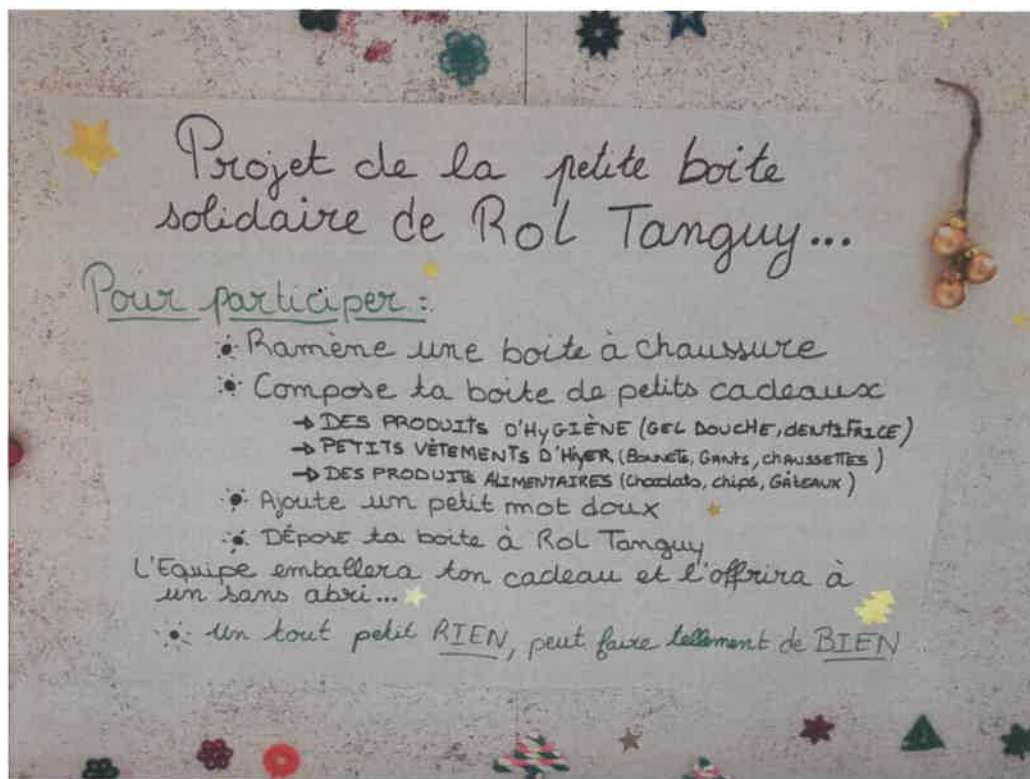 Projet de la petite boite
solidaire de Rol Tanguy...
Pour participer :
Ramène une boite à chaussure
Compose ta boite de petits cadeaux
→ DES PRODUITS D'HyGIÈNE (GEL DOUCHE, dENTIFRICE)
→ PETITS VÊTEMENTS D'HIVER (BONNETS, GANTS, CHAUSSETTES)
→ DES PRODUITS ALIMENTAIRES (Chocolats, chips, GÂTEAUX)
Ajoute un petit mot doux
DÉPOSE ta boite à Rol Tanguy
L'Equipe emballera ton cadeau et l'offrira à
un sans abri...
Un tout petit RIEN, peut faire tellement de BIEN